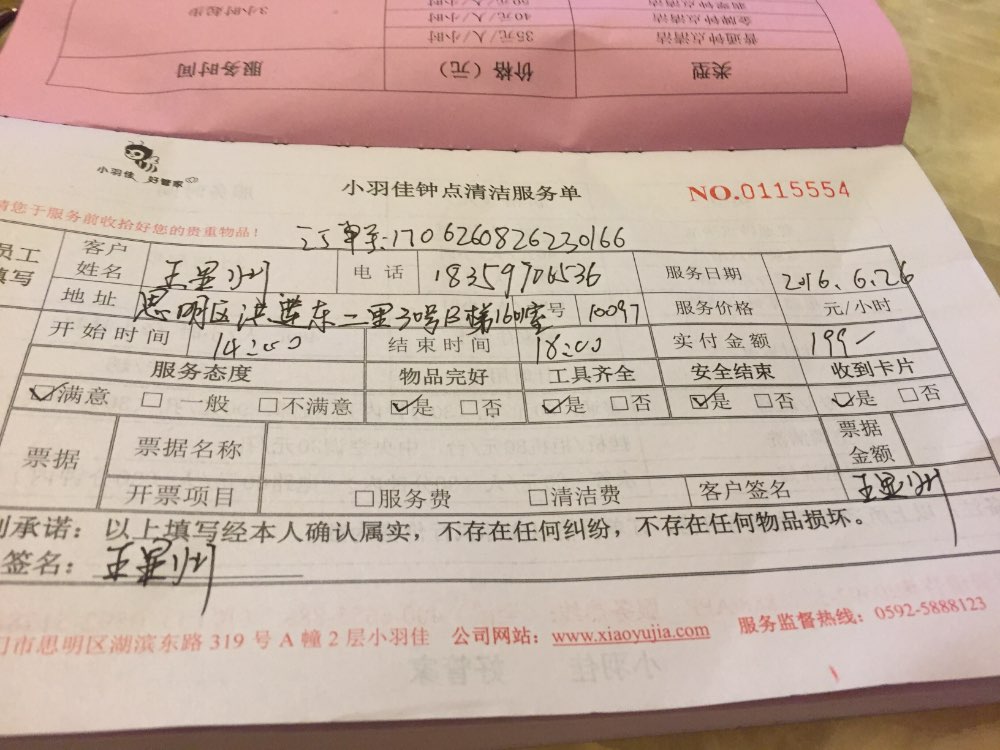 3小时起步
50元/人/小时
金牌钟点清洁 40元/人/小时
普通钟点清洁 35元/人/小时
类型 价格（元） 服务时间
小羽佳 好管家
小羽佳钟点清洁服务单 NO.0115554
请您于服务前收拾好您的贵重物品！
订单号:1706260826230166
员工填写 客户姓名 王显州 电话 服务日期 2016.6.26
地址 思明区洪莲东二里30号B梯1601室 号 10097 服务价格 元/小时
开始时间 14:00 结束时间 18:00 实付金额 199
服务态度 物品完好 工具齐全 安全结束 收到卡片
☑满意 □一般 □不满意 ☑是 □否 ☑是 □否 ☑是 □否 ☑是 □否
票据 票据名称 票据金额
开票项目 □服务费 □清洁费 客户签名 王显州
承诺：以上填写经本人确认属实，不存在任何纠纷，不存在任何物品损坏。
签名：王显州
门市思明区湖滨东路 319 号 A 幢 2 层小羽佳 公司网站：www.xiaoyujia.com 服务监督热线：0592-5888123
小羽佳 好管家